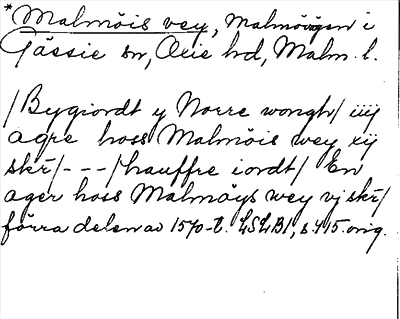 *Malmöis vey, Malmövägen i
Gässie sn, Oxie hd, Malm. l.
/Bygiordt y Norre wongh/ iiij
agre hoss Malmöis wey xij
skr/---/hauffre iordt/ En
ager hoss Malmöys wey vj skr/
förra delen av 1570-t. LSLB1, s. 415. orig.